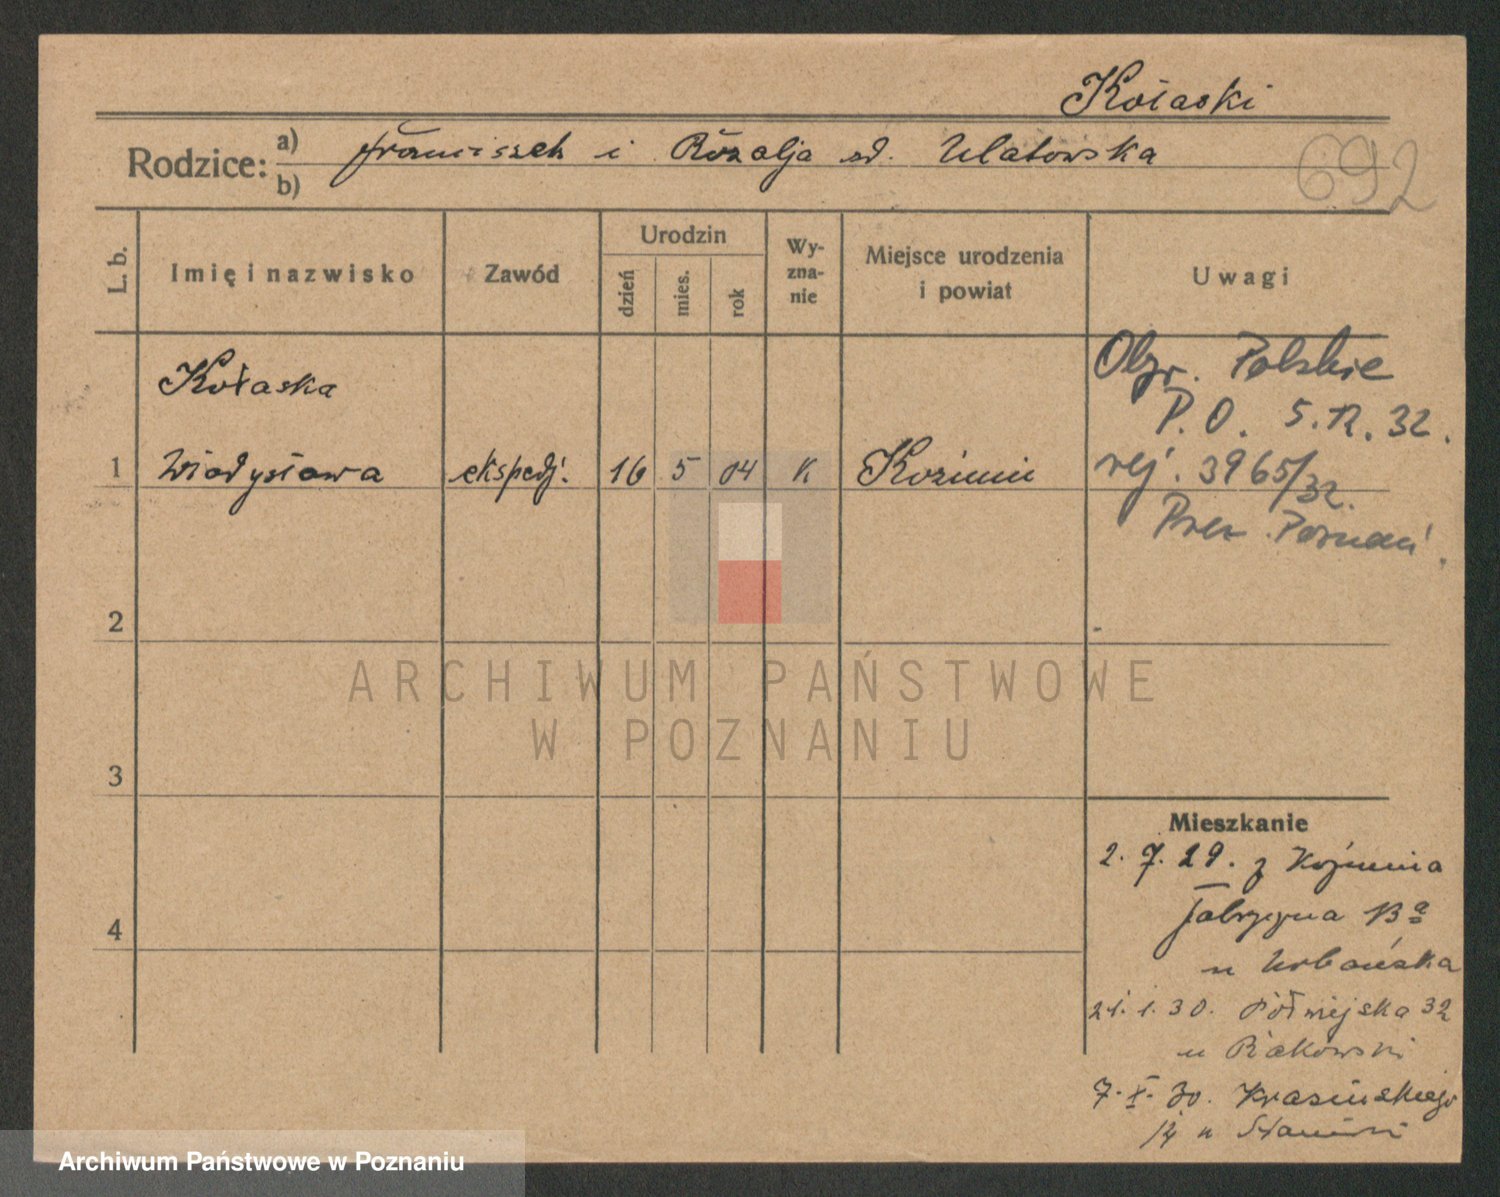 Kołaski
Rodzice: a) Franciszek i Rozalja zd. Ulatowska
b)
692
L. b.
Imię i nazwisko
Zawód
Urodzin
dzień
mies.
rok
Wy-
zna-
nie
Miejsce urodzenia
i powiat
Uwagi
Kołaska
1 Władysława ekspedj. 16 5 04 K Koźmin
Obyw. Polskie
P.O. 5.12.32.
rej. 3965/32.
Prez Poznań.
2
3
4
Mieszkanie
2. 7. 29. z Koźmina
Fabryczna 13a
u Urbańska
21. 1. 30. Półwiejska 32
u Rakowski
7. X. 30. Krasińskiego
14 u
ARCHIWUM PAŃSTWOWE
W POZNANIU
Archiwum Państwowe w Poznaniu